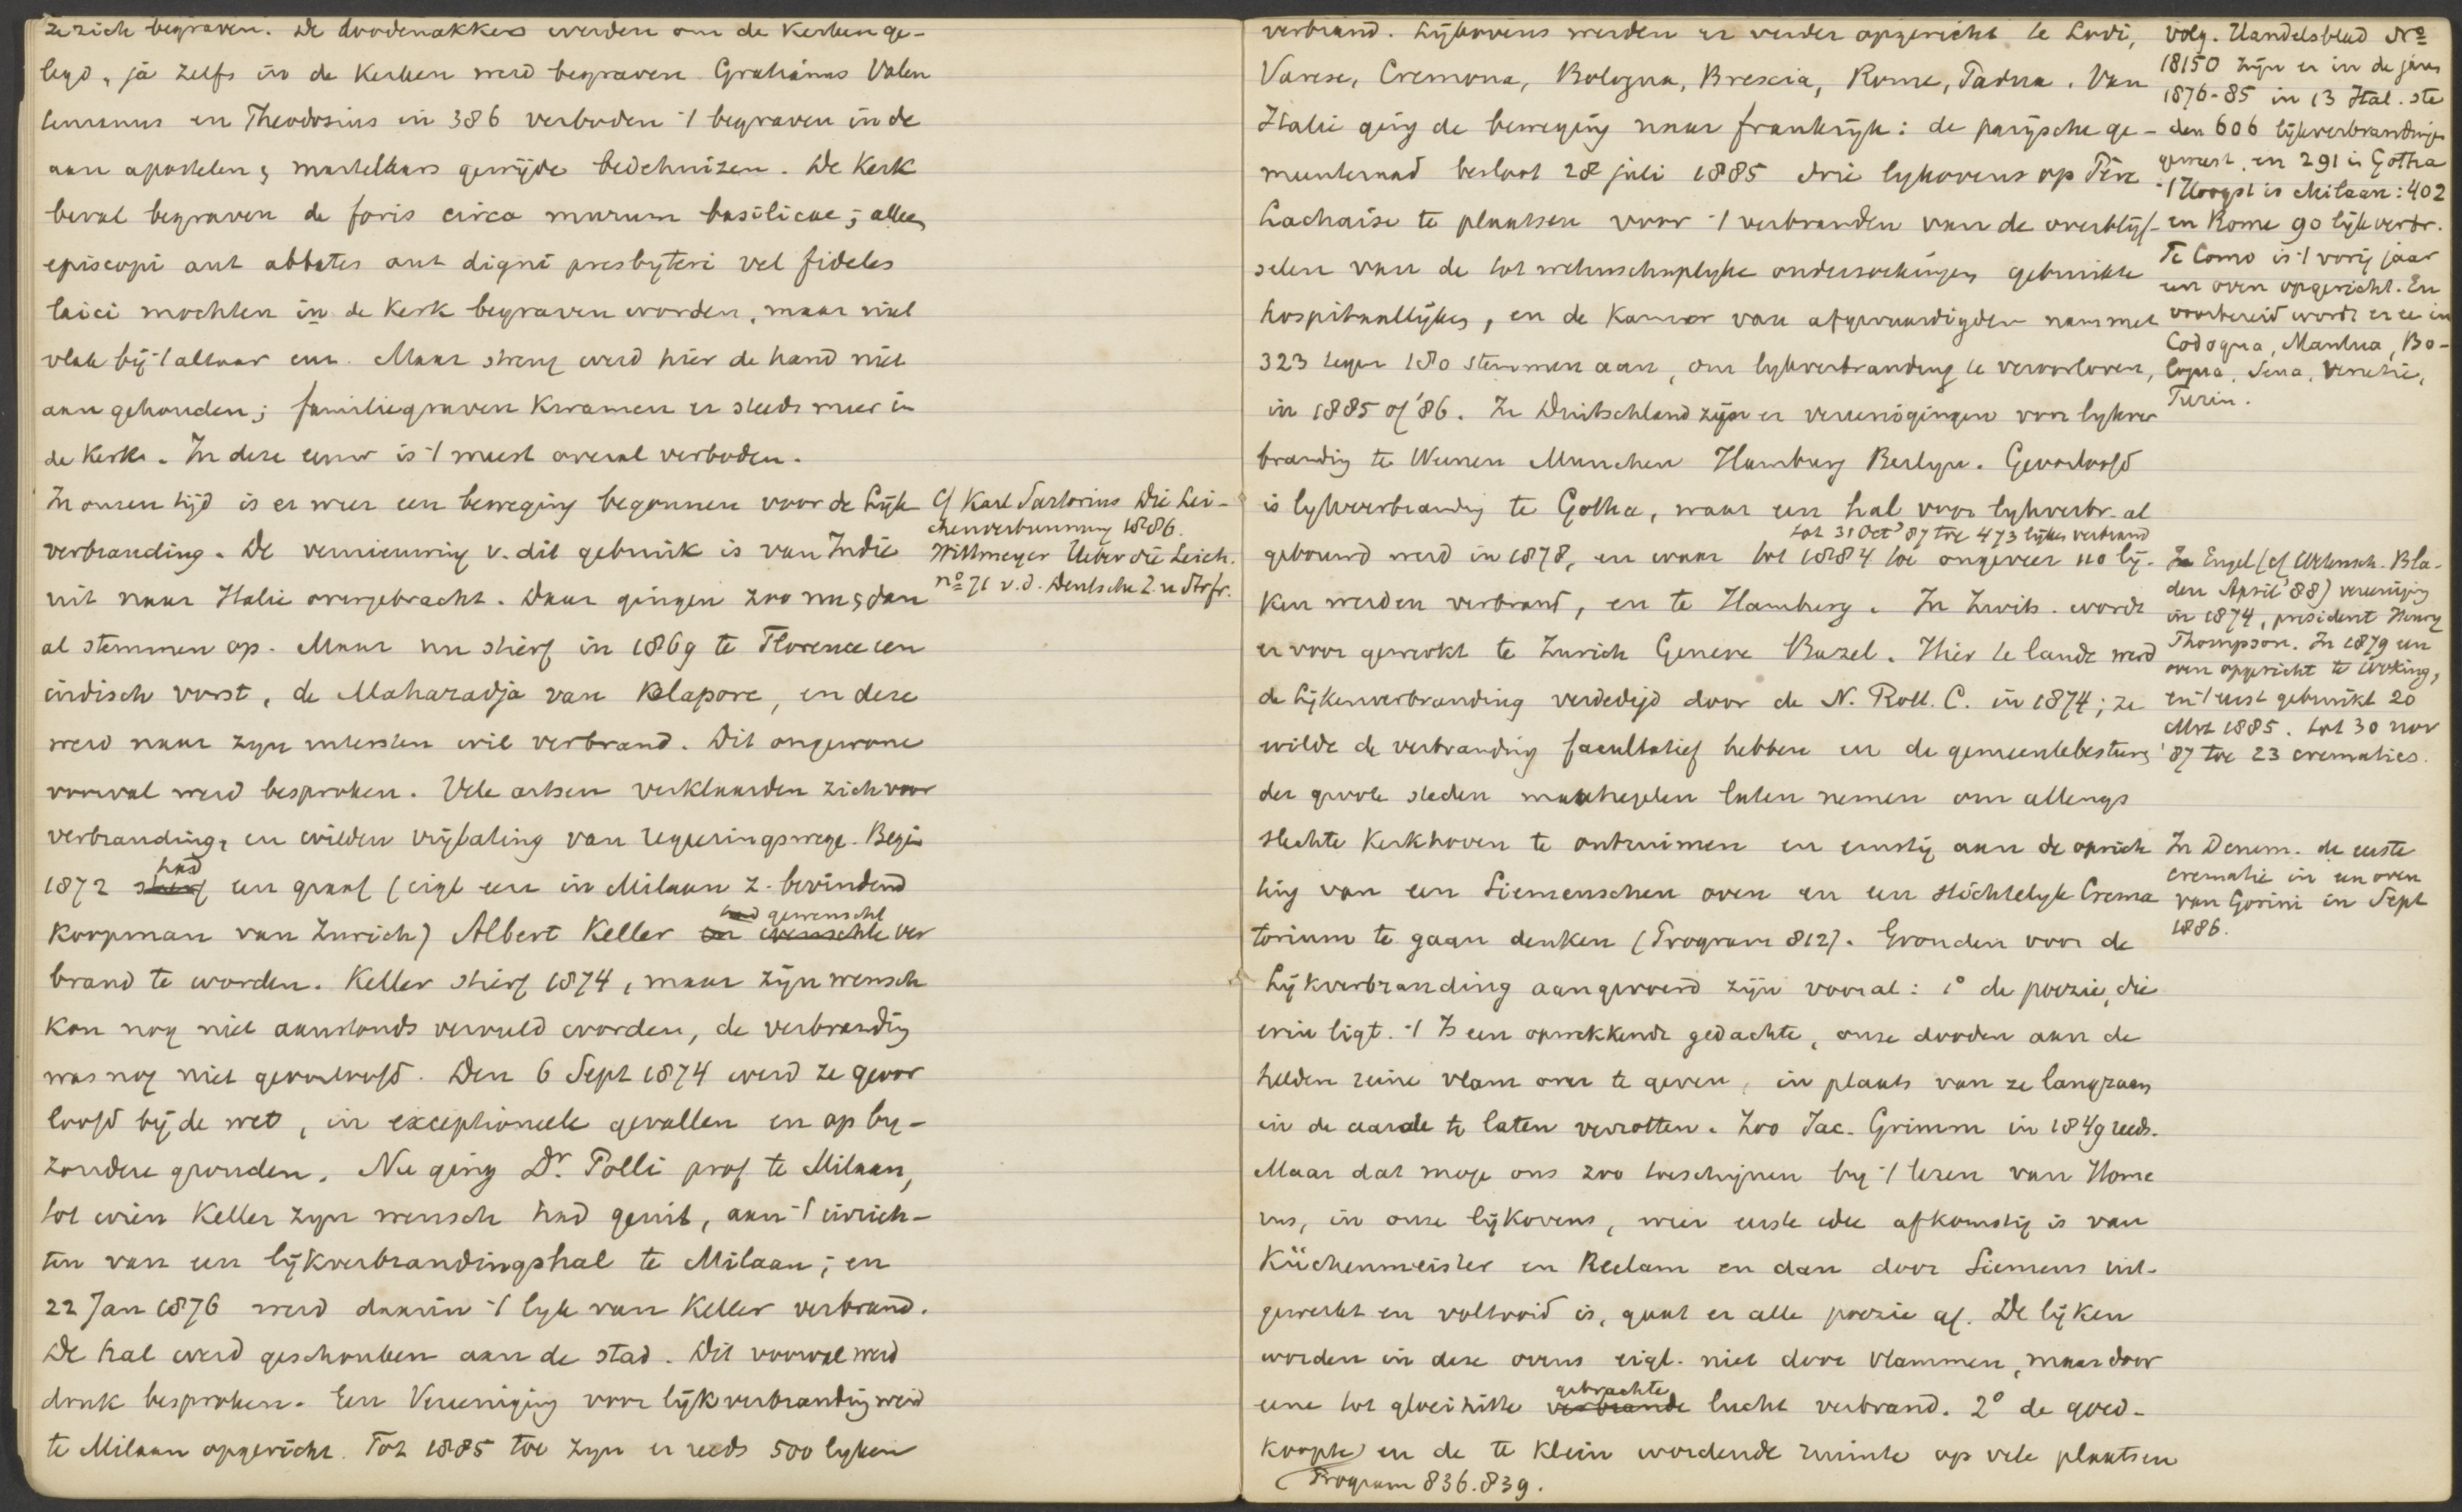 ze zich begraven. De doodenakkers werden om de kerken ge-
legd, ja zelfs in de kerken werd begraven Gratianus Valen
tinianus en Theodosius in 386 verboden 't begraven in de
aan apostelen & martelaars gewijde bedehuizen. De Kerk
beval begraven de foris circa murum basilicae; alleen
episcopi aut abbates aut digni presbyteri vel fideles
laici mochten in de Kerk begraven worden, maar niet
vlak bij 't altaar enz. Maar streng werd hier de hand niet
aan gehouden; familiegraven kwamen er steeds meer in
de Kerk. In deze eeuw is 't meest overal verboden.
In onzen tijd is er weer een beweging begonnen voor de Lijk
verbranding. De vernieuwing v. dit gebruik is van Indie
uit naar Italie overgebracht. Daar gingen zoo nu & dan
al stemmen op. Maar nu stierf in 1869 te Florence een
indisch vorst, de Maharadja van Klapore, en deze
werd naar zijn uitersten wil verbrand. Dit ongewone
voorval werd besproken. Vele artsen verklaarden zich voor
verbranding, en wilden vrijlating van regeeringswege. Begin
had
1872 stierf een graaf (eigl een in Milaan z. bevindend
had gewenscht
koopman van Zurich) Albert Keller en wenschte ver
brand te worden. Keller stierf 1874, maar zijn wensch
kon nog niet aanstonds vervuld worden, de verbranding
was nog niet geoorloofd. Den 6 Sept 1874 werd ze geoor
loofd bij de wet, in exceptioneele gevallen en op by-
zondere gronden. Nu ging Dr. Polli prof te Milaan,
tot wien Keller zyn wensch had geuit, aan 't inrich-
ten van een lijkverbrandingshal te Milaan; en
22 Jan 1876 werd daarin 't lyk van Keller verbrand.
De hal werd geschonken aan de stad. Dit voorval werd
druk besproken. Een Vereeniging voor lijkverbranding werd
te Milaan opgericht. Tot 1885 toe zyn er reeds 500 lyken
cf Karl Sartorius Die Lei-
chenverbrennung 1886.
Wittmeyer Ueber die Leich.
no 71 v. d. Deutsche Z. u Strfr.
verbrand. Lijkovens werden er verder opgericht te Lodi,
Varese, Cremona, Bologna, Brescia, Rome, Padua. Van
Italie ging de beweging naar frankrijk: de parijsche ge-
meenteraad besloot 28 juli 1885 drie lykovens op Père
Lachaise te plaatsen voor 't verbranden van de overblijf-
selen van de tot wetenschaplyke onderzoekingen gebruikte
hospitaallijken, en de Kamer van afgevaardigden nam met
323 tegen 180 stemmen aan, om lykverbranding te veroorloven,
in 1885 of '86. In Duitschland zijn er vereenigingen voor lykver
branding te Weenen Munchen Hamburg Berlyn. Geoorloofd
is lykverbranding te Gotha, waar een hal voor lykverbr. al
tot 31 Oct '87 toe 473 lijken verbrand
gebouwd werd in 1878, en waar tot 1884 toe ongeveer 110 lij-
ken werden verbrand, en te Hamburg. In Zwits. wordt
er voor gewerkt te Zurich Geneve Bazel. Hier te lande werd
de Lijkenverbranding verdedigd door de N. Rott. C. in 1874; ze
wilde de verbranding facultatief hebben en de gemeentebesturen
der groote steden maatregelen laten nemen om allengs
slechte kerkhoven te ontruimen en ernstig aan de oprich
ting van een Siemenschen oven en een stichtelyk Crema
torium te gaan denken (Program 812). Gronden voor de
Lijkverbranding aangevoerd zijn vooral: 1° de poezie, die
erin ligt. 't Is een opwekkende gedachte, onze dooden aan de
helden reine vlam over te geven, in plaats van ze langzaam
in de aarde te laten verrotten. Zoo Jac. Grimm in 1849 reeds.
Maar dat moge ons zoo toeschijnen by 't lezen van Home
rus, in onze lijkovens, wier eerste idee afkomstig is van
Küchenmeister en Reclam en dan door Siemens uit-
gewerkt en voltooid is, gaat er alle poezie af. De lijken
worden in deze ovens eigl. niet door vlammen, maar door
gebrachte
eene tot gloeihitte verbrande lucht verbrand. 2° de goed-
koopte en de te klein wordende ruimte op vele plaatsen
Program 836. 839.
volg. Handelsblad No
18150 zijn er in de jaren
1876-85 in 13 Ital. ste
den 606 lijkverbrandingen
geweest, en 291 in Gotha
't Hoogst is Milaan: 402
en Rome 90 lijkverbr.
Te Como is 't vorig jaar
een oven opgericht. En
voorbereid wordt er ee in
Codogna, Mantua, Bo-
logna, Siena, Venetie,
Turin.
In Engel (cf Wetensch. Bla-
den April '88) vereeniging
in 1874, president Henry
Thompson. In 1879 een
oven opgericht te Woking,
en 't eerst gebruikt 20
Mrt 1885. tot 30 nov
'87 toe 23 crematies.
In Denem. de eerste
crematie in een oven
van Gorini in Sept
1886.